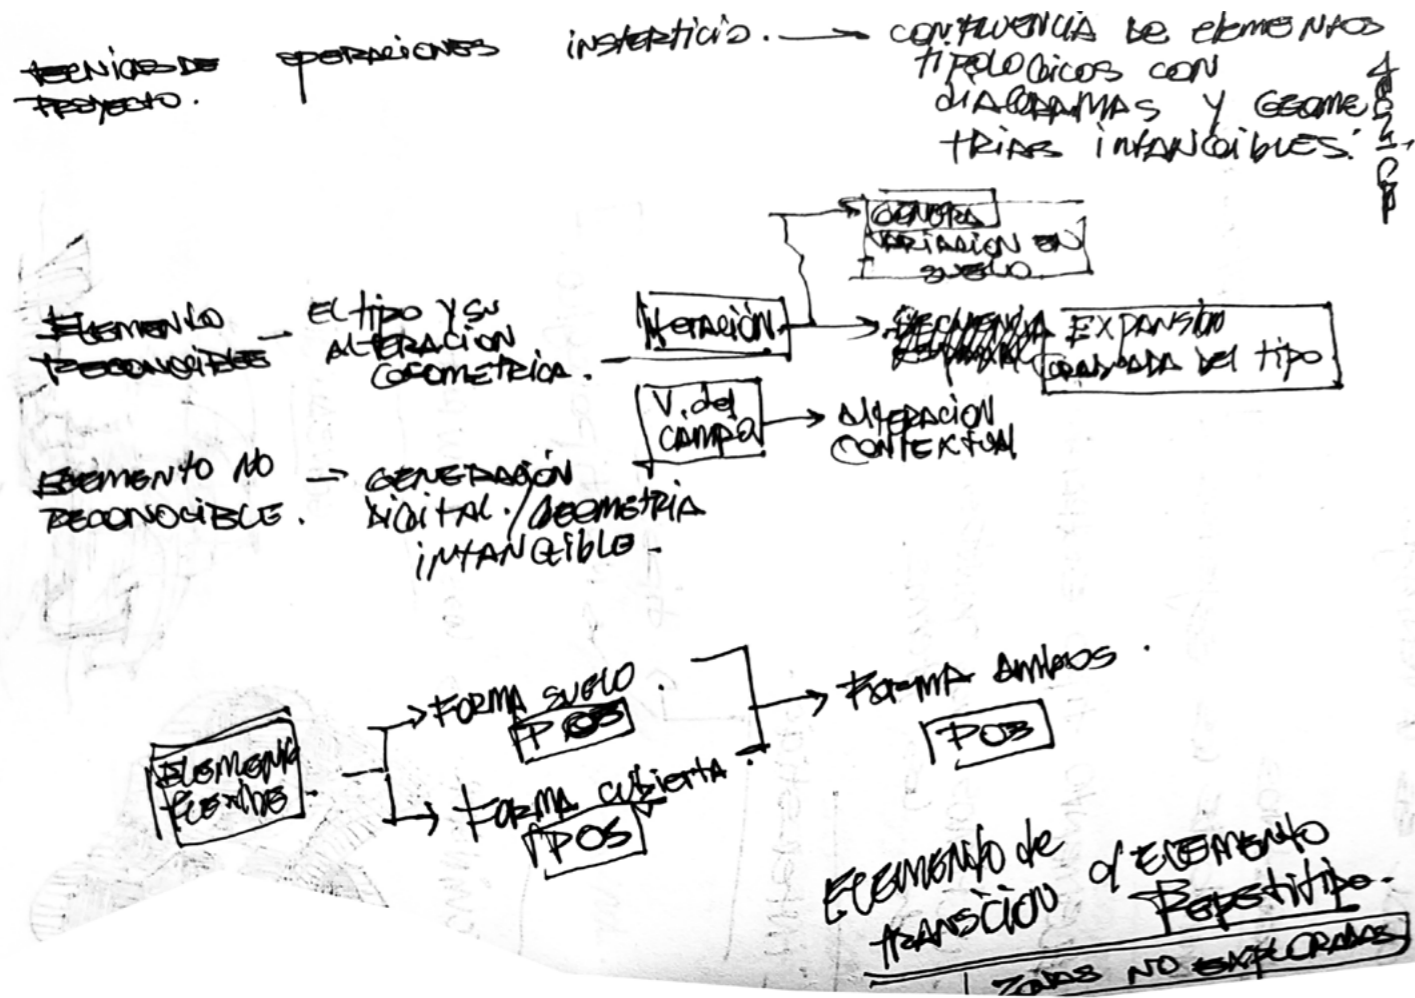 TECNICAS DE OPERACIONES INSTERTICIO. → CONFLUENCIA DE ELEMENTOS
PROYECTO.
TIPOLOGICOS CON
DIAGRAMAS Y GEOME
TRIAS INTANGIBLES.
GENERA
VARIACION EN
SUELO.
ELEMENTO
RECONOCIBLE
EL TIPO Y SU
ALTERACION
GEOMETRICA.
ITERACIÓN
EXPANSIÓN
GRADUADA DEL TIPO
V. del
CAMPO
→ ALTERACION
CONTEXTUAL
ELEMENTO NO
RECONOCIBLE.
→ GENERACIÓN
DIGITAL. / GEOMETRIA
INTANGIBLE.
ELEMENTO
FLEXIBLE.
FORMA SUELO.
POS
FORMA CUBIERTA.
POS
FORMA AMBOS.
POS
ELEMENTO de
TRANSICION
ELEMENTO
Repetitipo.
ZONAS NO EXPLORADAS